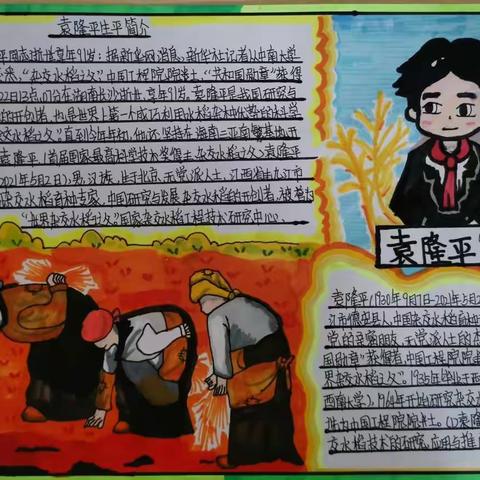 袁隆平生平简介
平同志逝世享年91岁:据新华网消息,新华社记者从中南大学
悉,"杂交水稻之父"中国工程院院士,"共和国勋章"获得
22日13点07分在湖南长沙逝世,享年91岁,袁隆平是我国研究与
的开创者,也是世界上第一个成功利用水稻杂种优势的科学
杂交水稻之父"直到今年初,他还坚持在海南三亚南繁基地开
袁隆平(首届国家最高科学技术奖得主杂交水稻之父)袁隆平
2021年5月22日),男,汉族,生于北京,无党派人士,江西省九江市
杂交水稻育种专家,中国研究与发展杂交水稻的开创者,被誉为
"世界杂交水稻之父"国家杂交水稻工程技术研究中心.
袁隆平
袁隆平(1930年9月7日-2021年5月2
江市德安县人,中国杂交水稻育种
党的亲密朋友,无党派人士的杰
国勋章"获得者,中国工程院院
界杂交水稻之父"。1935年毕业于西
西南大学),1964年开始研究杂交水
选为中国工程院院士。(1)袁隆
交水稻技术的研究,应用与推